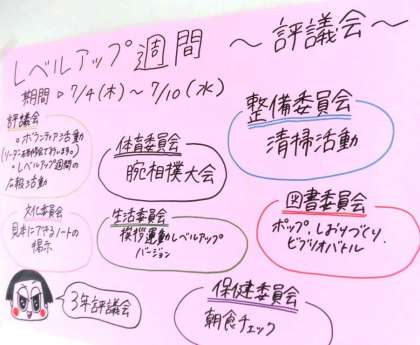 レベルアップ週間 ～評議会～
期間 ▷ 7/4(木)～7/10(水)
評議会
。ボランティア活動
。レベルアップ週間の
広報活動
体育委員会
腕相撲大会
整備委員会
清掃活動
文化委員会
見本にできるノートの
掲示
生活委員会
挨拶運動レベルアップ
バージョン
図書委員会
ポップ、しおりづくり、
ビブリオバトル
3年評議会
保健委員会
朝食チェック